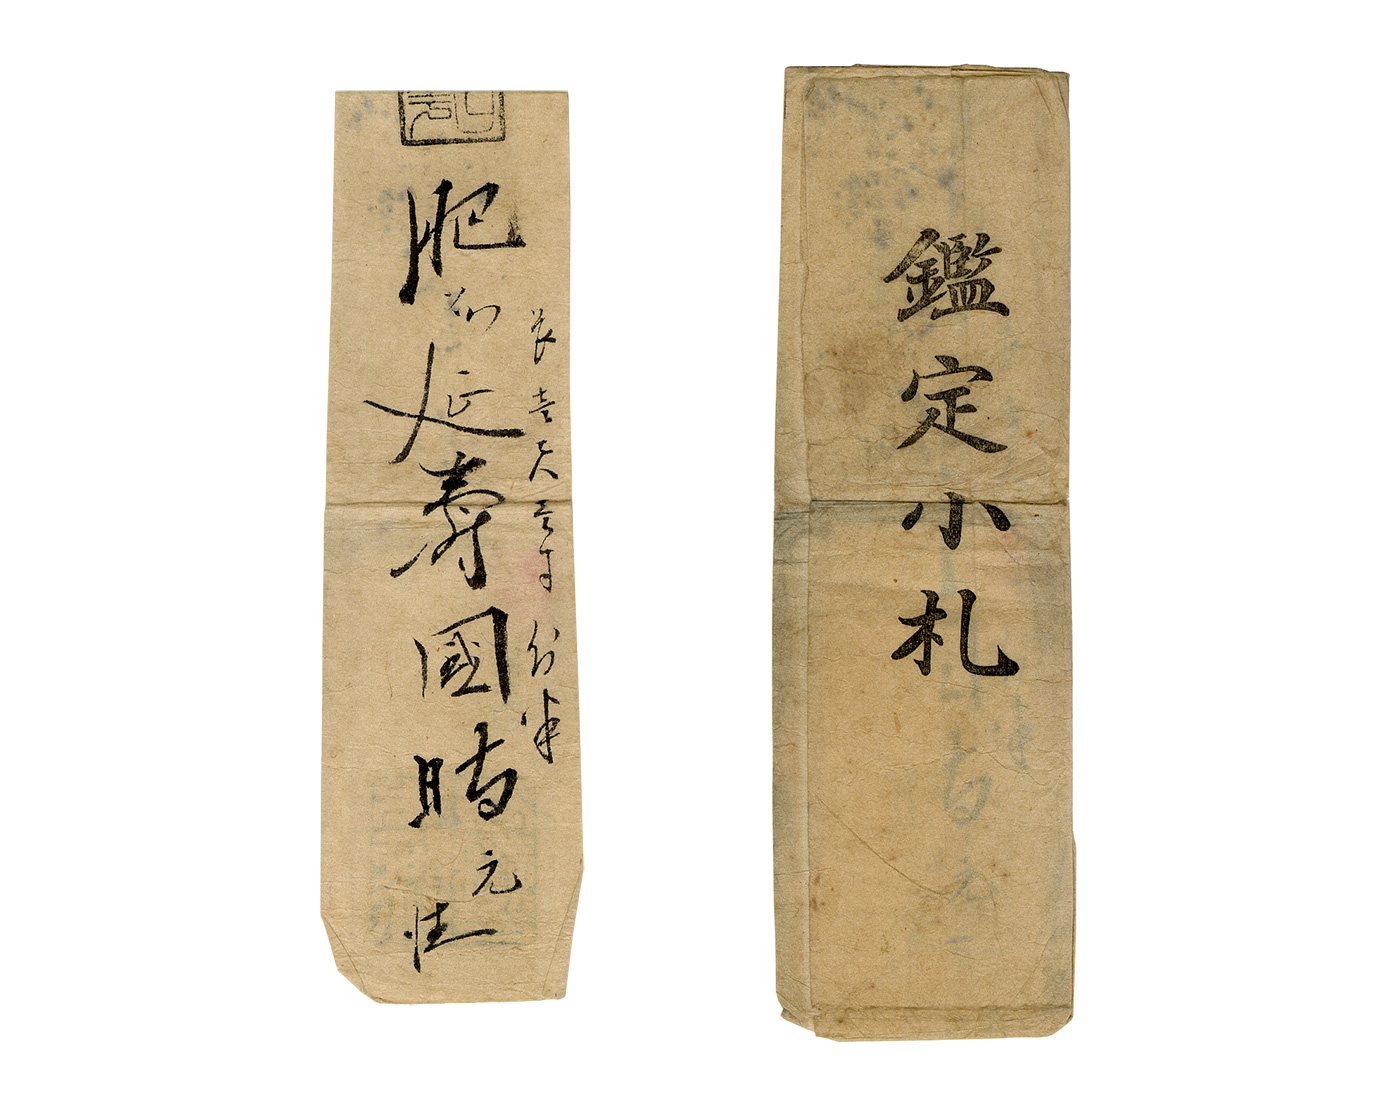 肥州延壽國時
元
長壹尺壹寸
分半
鑑定小札